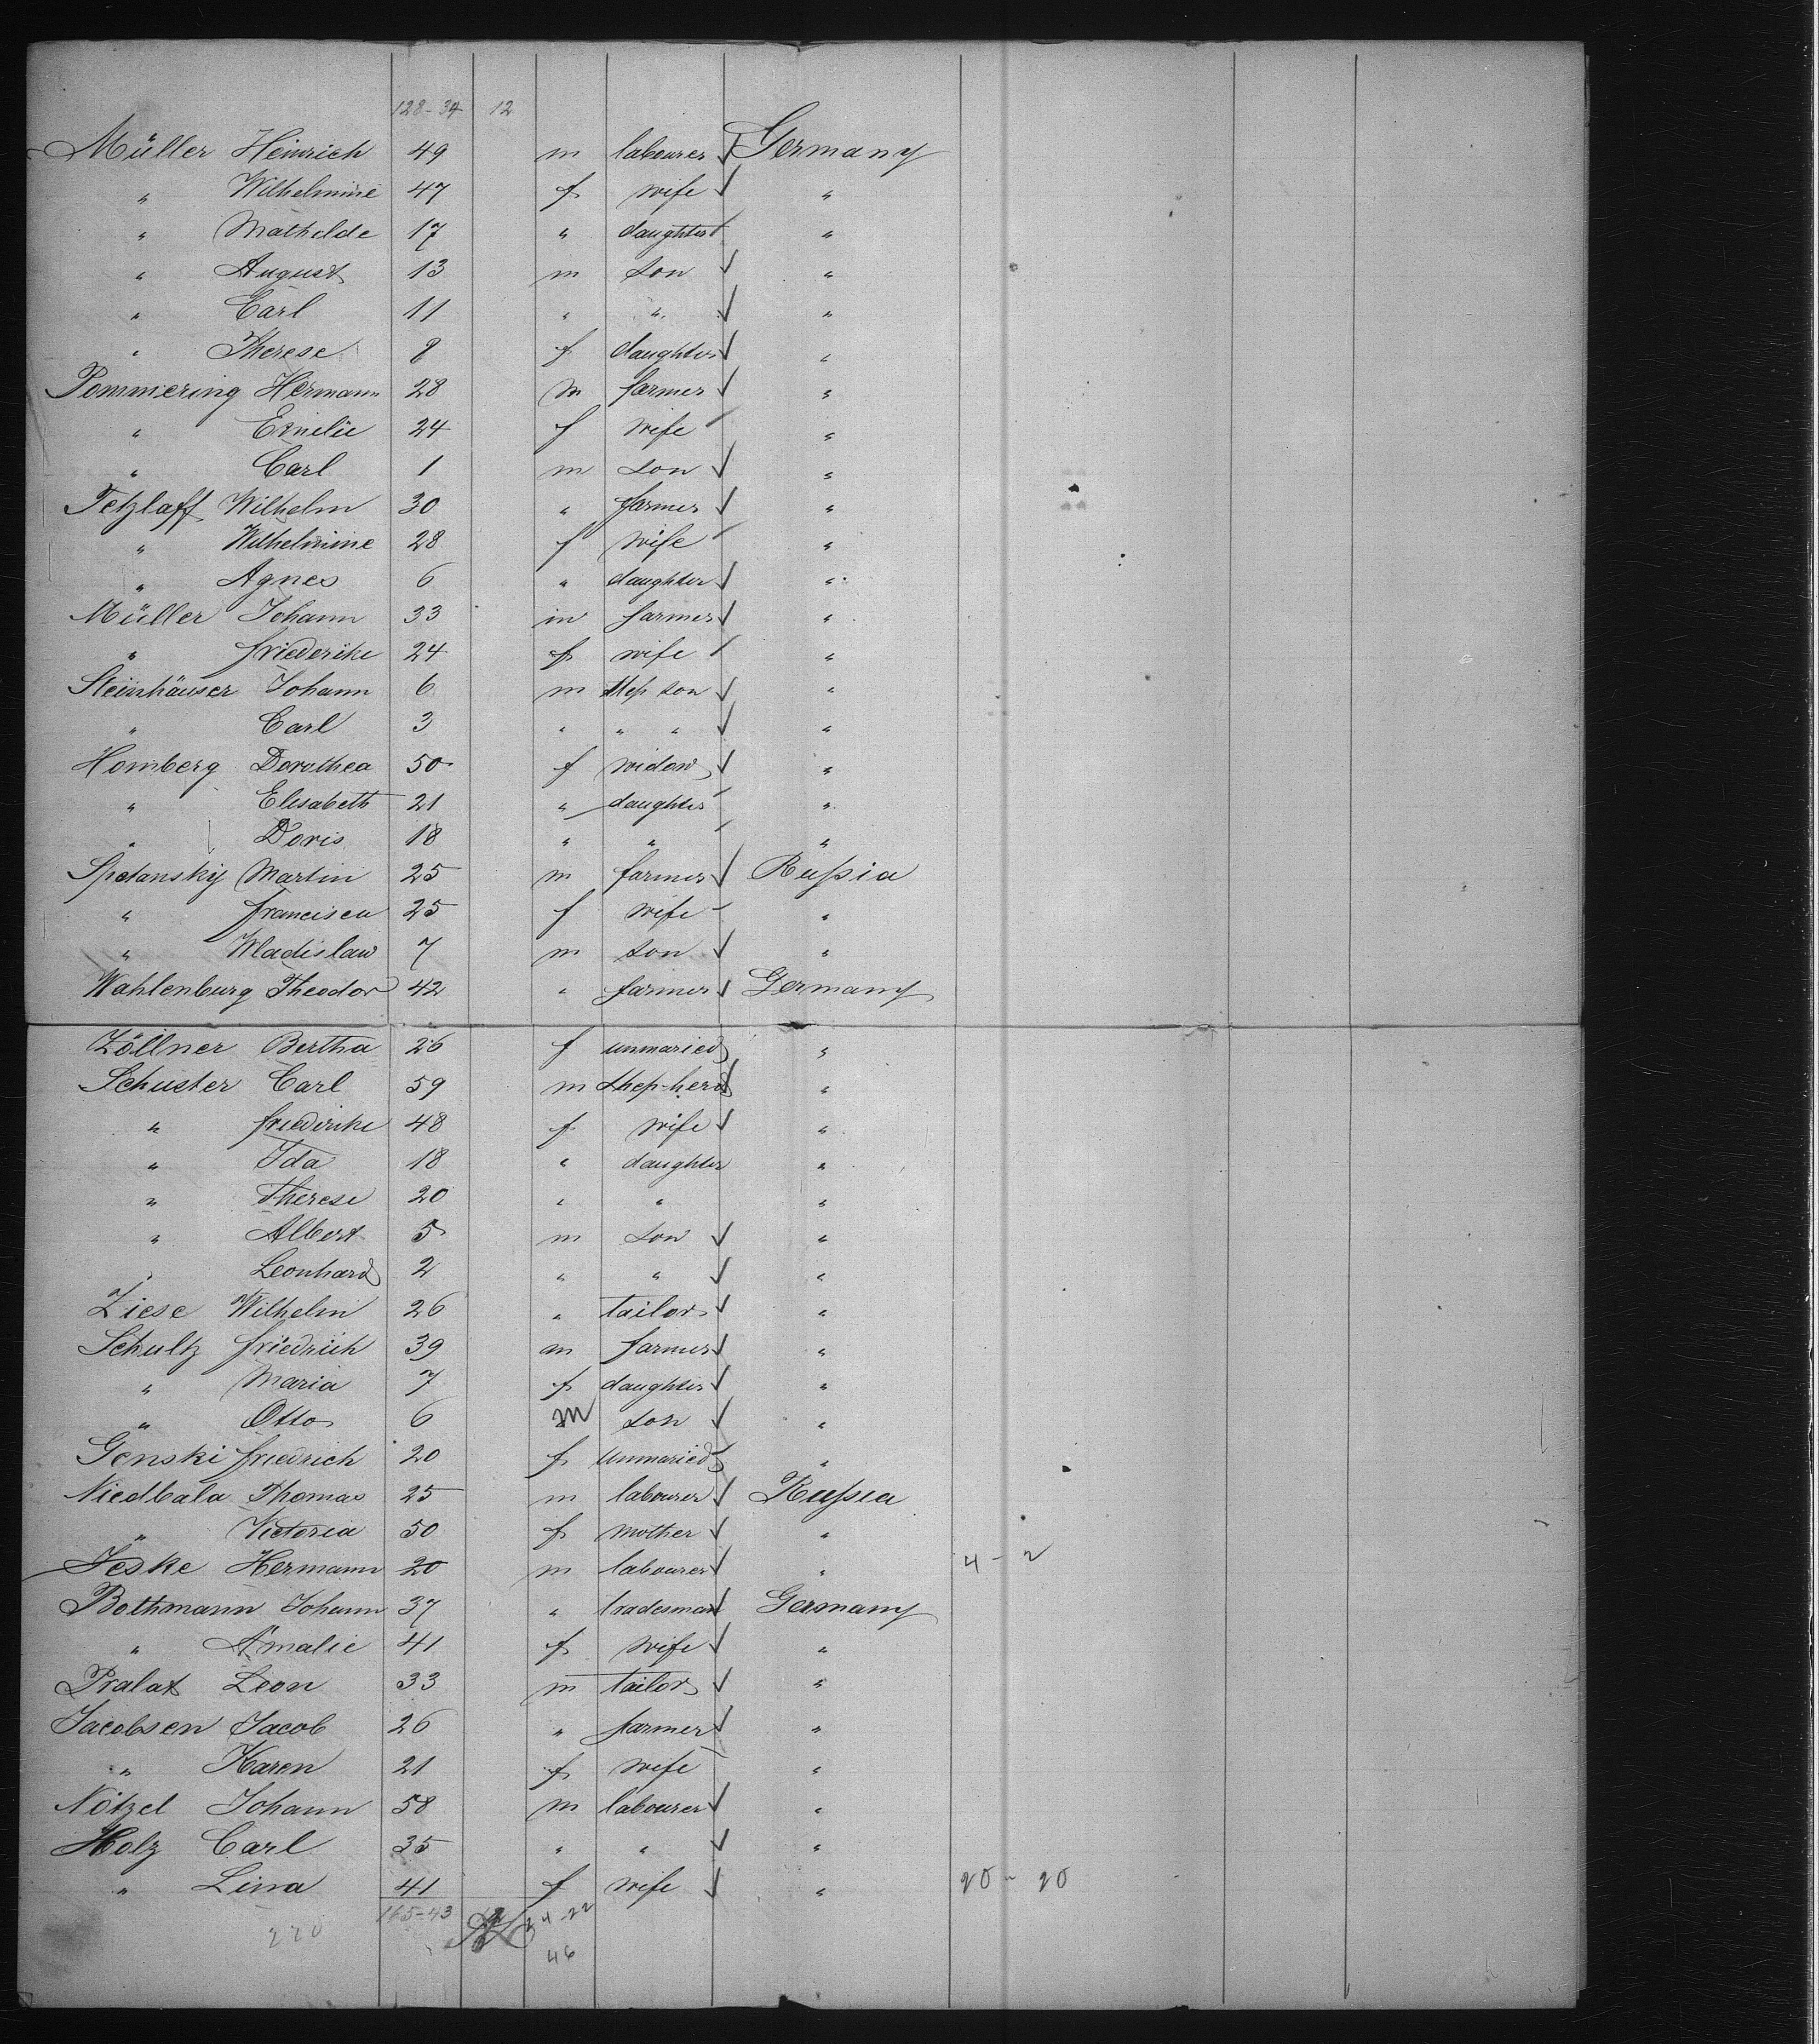 128-34 12
Müller Heinrich 49 m labourer Germany
" Wilhelmine 47 f wife "
" Mathelde 17 " daughter "
" August 13 m son "
" Carl 11 " " "
" Therese 8 f daughter "
Pommering Hermann 28 m farmer "
" Emelie 24 f wife "
" Carl 1 m son "
Tetzlaff Wilhelm 30 " farmer "
" Wilhelmine 28 f wife "
" Agnes 6 " daughter "
Müller Johann 33 m farmer "
" Friederike 24 f wife "
Steinhäuser Johann 6 m step son "
" Carl 3 " " " "
Homberg Dorothea 50 f widow "
" Elisabeth 21 " daughter "
" Doris 18 " " "
Spetansky Martin 25 m farmer Russia
" Francisca 25 f wife "
" Wladislaw 7 m son "
Wahlenburg Theodor 42 " farmer Germany
Zöllner Bertha 26 f unmaried "
Schuster Carl 59 m shep-herd "
" Friederike 48 f wife "
" Ida 18 " daughter "
" Therese 20 " " "
" Albert 5 m son "
" Leonhard 2 " " "
Ziese Wilhelm 26 " tailor "
Schultz Friedrich 39 m farmer "
" Maria 7 f daughter "
" Otto 6 m son "
Genski Friedrich 20 f unmaried "
Niedbala Thomas 25 m labourer Russia
" Victoria 50 f mother "
Jeske Hermann 20 m labourer " 4-2
Bothmann Johann 37 " tradesman Germany
" Amalie 41 f wife "
Pralat Leon 33 m tailor "
Jacobsen Jacob 26 " farmer "
" Karen 21 f wife "
Nötzel Johann 58 m labourer "
Holz Carl 35 " " "
" Lina 41 f wife " 20-20
165-43 24-22
220 46